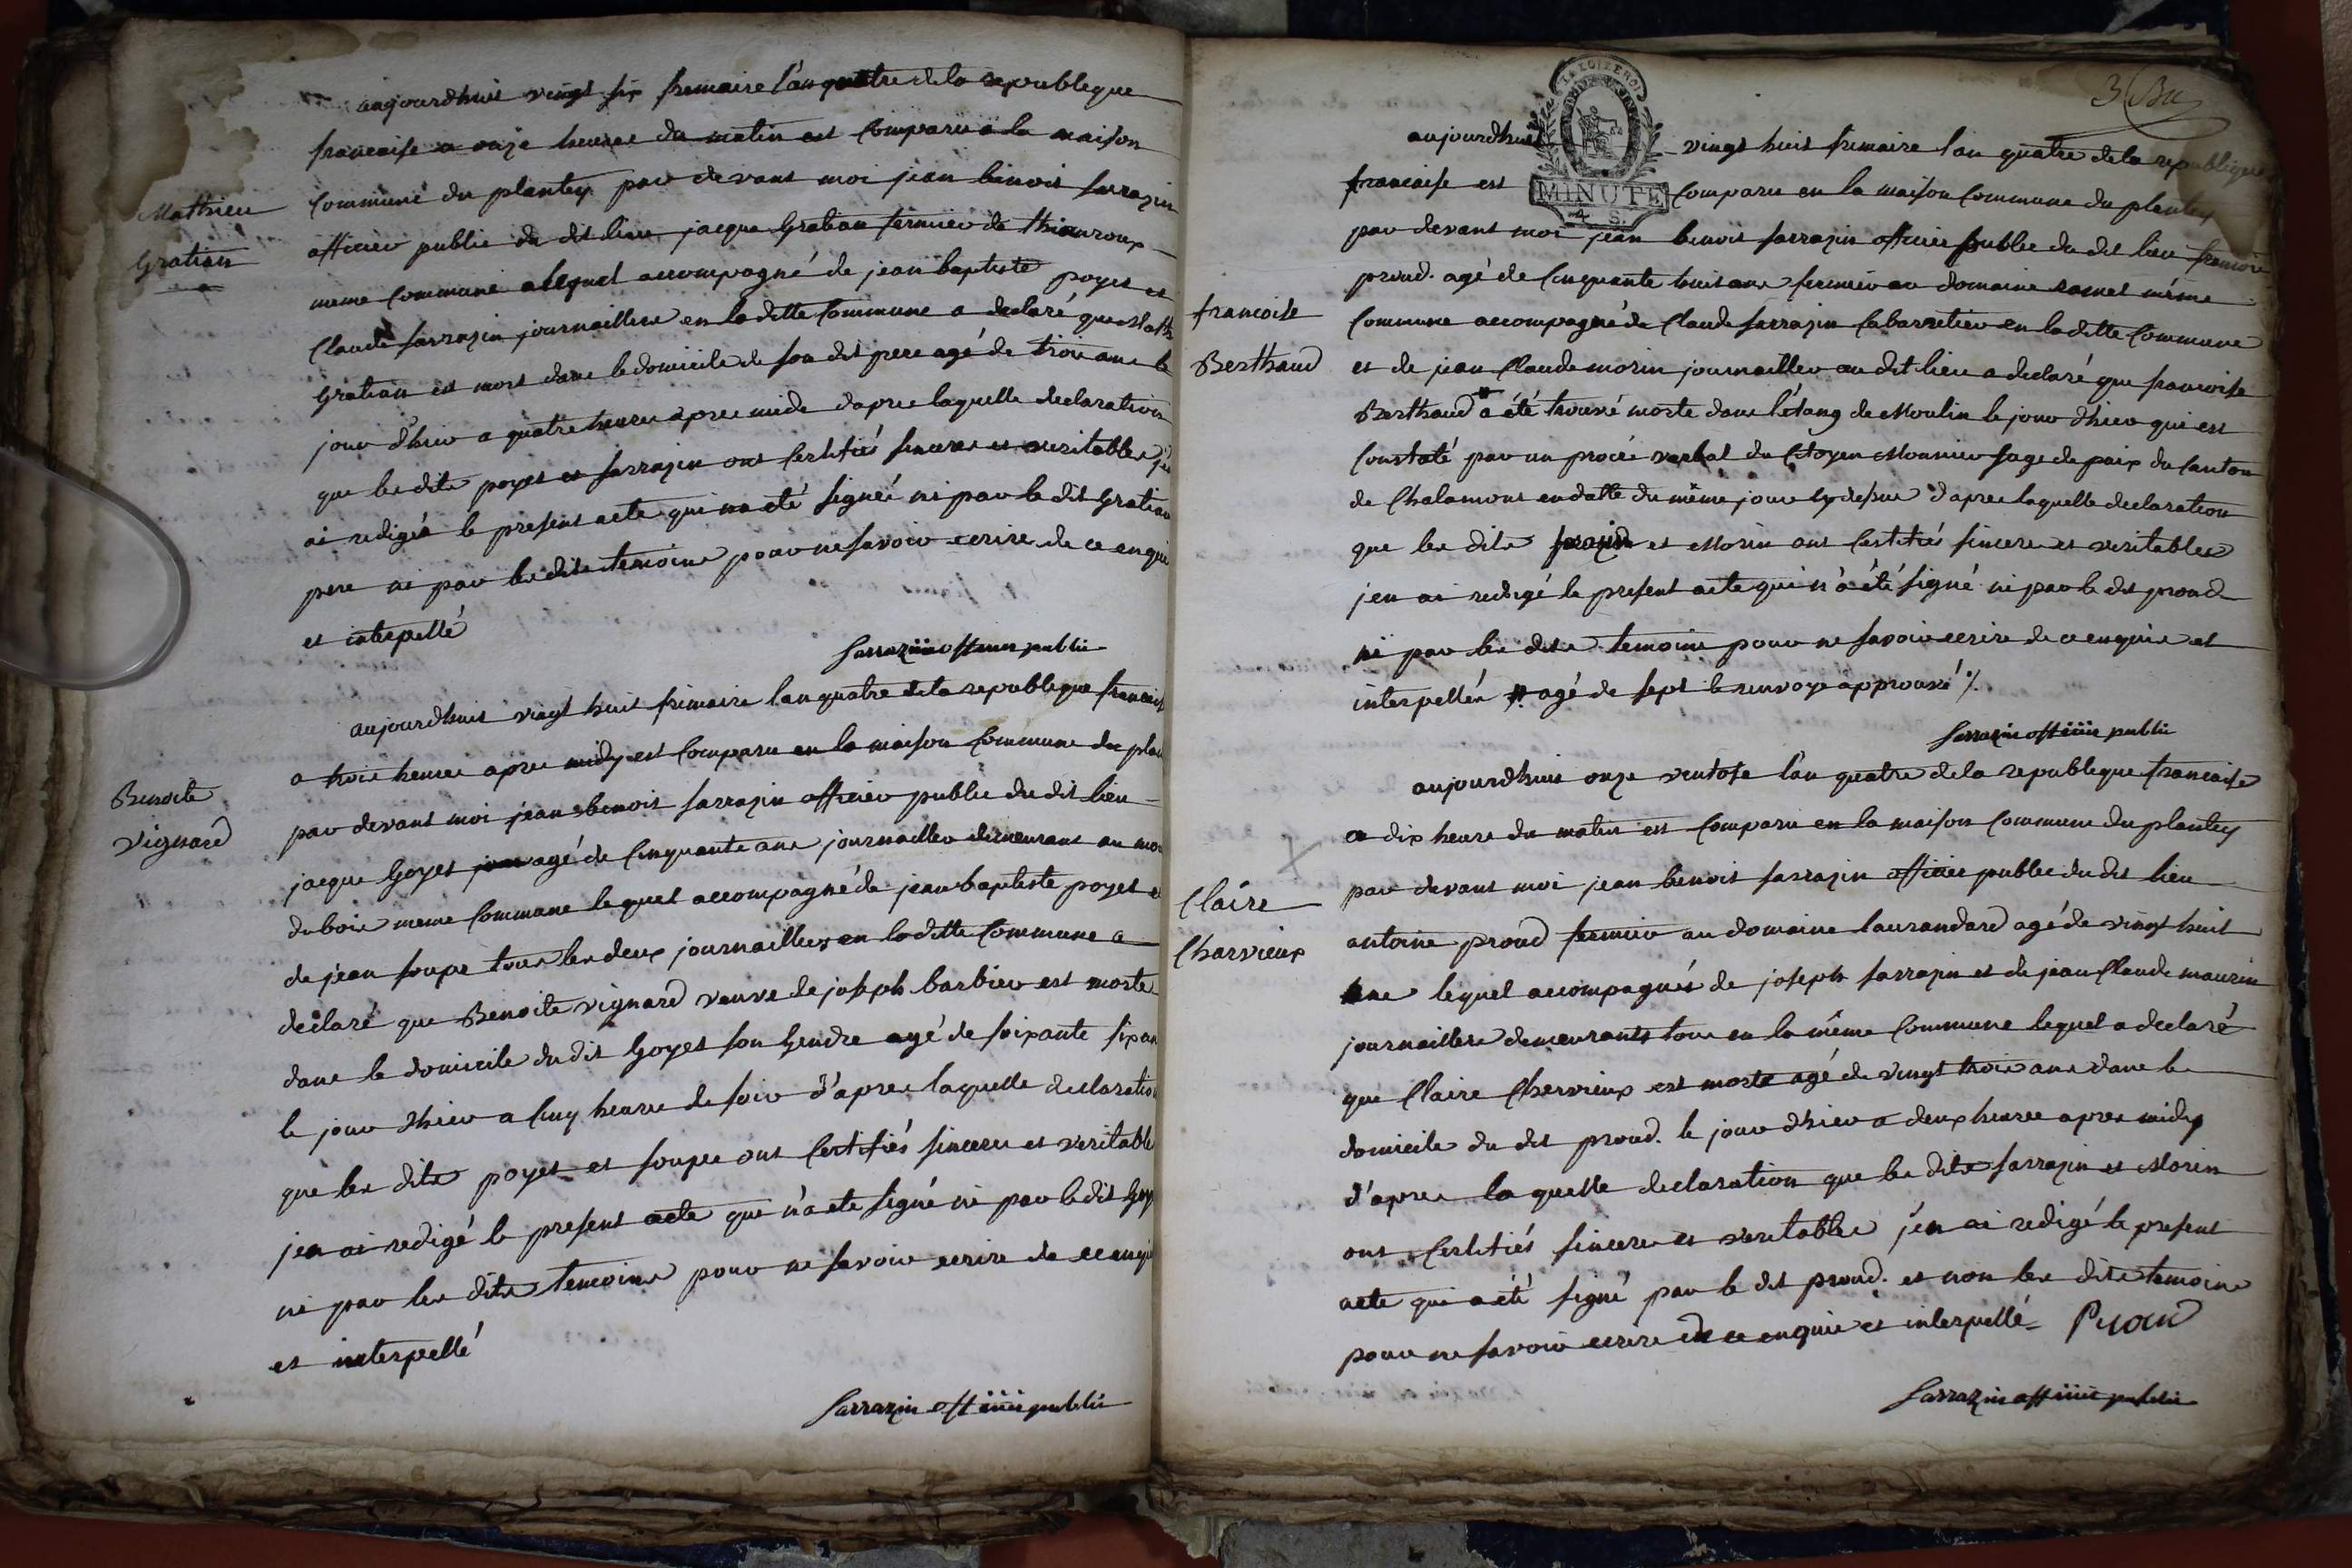 aujourdhuit vingt six frimaire l'an quatre de la republeque
francaise a onze heures du matin est Comparu a la maison
Commune du plantey par devant moi jean benoit sarrazin
Mathieu
Gratian
officier public du dit lieu jacque Gratian fermier de
meme Commune alequel accompagné de jean baptiste poyet et
Claude sarrazin journailliers en la ditte Commune a declaré que Math
Gratian est mort dans le domicile de son dit pere agé de trois ans le
jour d'hier a quatre heures apres midi d'apres laquelle declaration
que les dits poyet et sarrazin ont Certifiés sinceres et veritables j'en
ai redigés le present acte qui na été signéé ni par le dit Gratian
pere ni par les dits temoins pour ne savoir ecrire de ce enquis
et interpellé
sarrazin officier public
aujourdhuit vingt huit frimaire l'an quatre de la republeque francais
a trois heures apres midy est Comparu en la maison Commune du plan
Benoite
Vignard
par devant moi jean benoit sarrazin officier public du dit lieu
jacque Goyet agé de Cinquante ans journaillier demeurant au mo
du bois meme Commune lequel accompagné de jean baptiste poyet et
de jean soupe tous les deux journailliers en la ditte Commune a
declaré que Benoite vignard veuve de joseph barbier est morte
dans le domicile du dit Goyet son Gendre agé de soixante six ans
le jour d'hier a Cinq heures de soir d'apres laquelle declaration
que les dits poyet et soupe ont Certifiés sinceres et veritable
jen ai redigé le present acte que n'a ete signé ni par le dit Goy
ni par les dits temoins pour ne savoir ecrire de ce enqu
et interpellé
sarrazin officier public
3
MINUTE
4 S.
aujourdhuit vingt huit frimaire l'an quatre de la republeque
francaise est Comparu en la maison Commune du plantey
par devant moi jean benoit sarrazin officier public du dit lieu francois
proud. agé de Cinquante huit ans fermier au domaine même
francoise
Berthaud
Commune accompagné de Claude sarrazin Cabarretier en la ditte Commune
et de jean Claude morin journaillier au dit lieu a declaré que francoise
Berthaud # a été trouvé morte dans l'étang de Moulin le jour d'hier qui est
Constaté par un procès verbal du Citoyen Monnier juge de paix du Canton
de Chalamont en datte du même jour cy dessus d'apres laquelle declaration
que les dits et Morin ont Certifiés sinceres et veritables
jen ai redigé le present acte qui n'a été signé ni par le dit proud
ni par les dits temoins pour ne savoir ecrire de ce enquis et
interpellés # agé de sept le renvoye approuvé %
sarrazin officier public
aujourdhuis onze ventose l'an quatre de la republeque francaise
a dix heure du matin est Comparu en la maison Commune du plantey
Claire
Charvieux
par devant moi jean benoit sarrazin officier public du dit lieu
antoine proud fermier au domaine laurandard agé de vingt huit
ans lequel accompagnés de joseph sarrazin et de jean Claude maurin
journailliers demeurants tous en la même Commune lequel a declaré
que Claire Chervieux est morte agé de vingt trois ans dans le
domicile du dit proud. le jour d'hier a deux heures apres midy
d'apres la quelle declaration que les dits sarrazin et Morin
ont Certifiés sinceres et veritables j'en ai redigé le present
acte qui a été signé par le dit proud. et non les dits temoins
pour ne savoir ecrire de ce enquis et interpellé Proud
sarrazin officier public